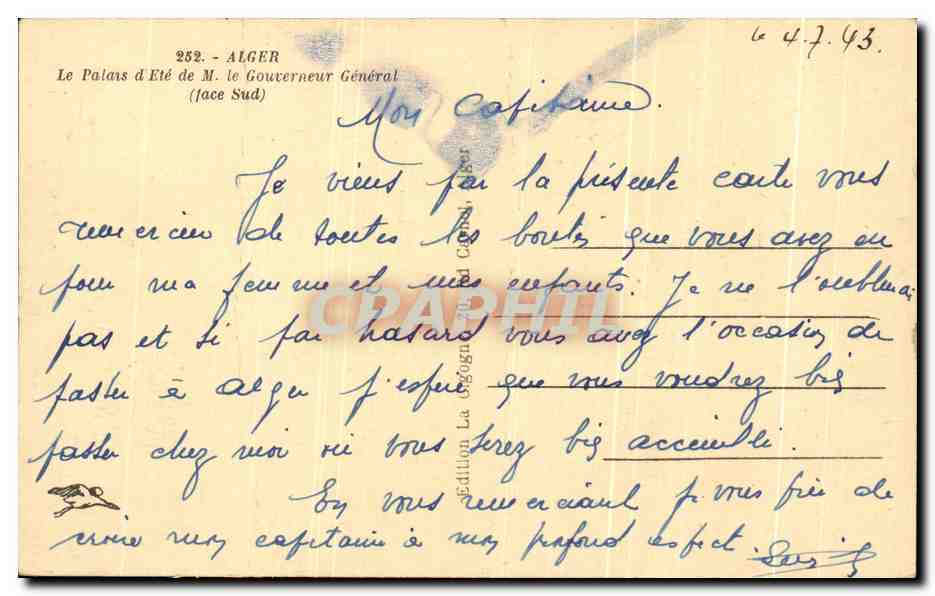 252. - ALGER
Le Palais d'Eté de M. le Gouverneur Général
(face Sud)
le 4.7.43.
Mon Capitaine.
Je viens par la présente carte vous
remercier de toutes les bontés que vous avez eu
pour ma femme et mes enfants. Je ne l'oublierai
pas et si par hasard vous avez l'occasion de
passer à Alger j'espère que vous voudrez bien
passer chez moi où vous serez bien accueilli.
En vous remerciant je vous prie de
croire mon capitaine à mon profond respect.
Edition La Cigogne, 20, Bd Carnot, Alger
CPAPHIL